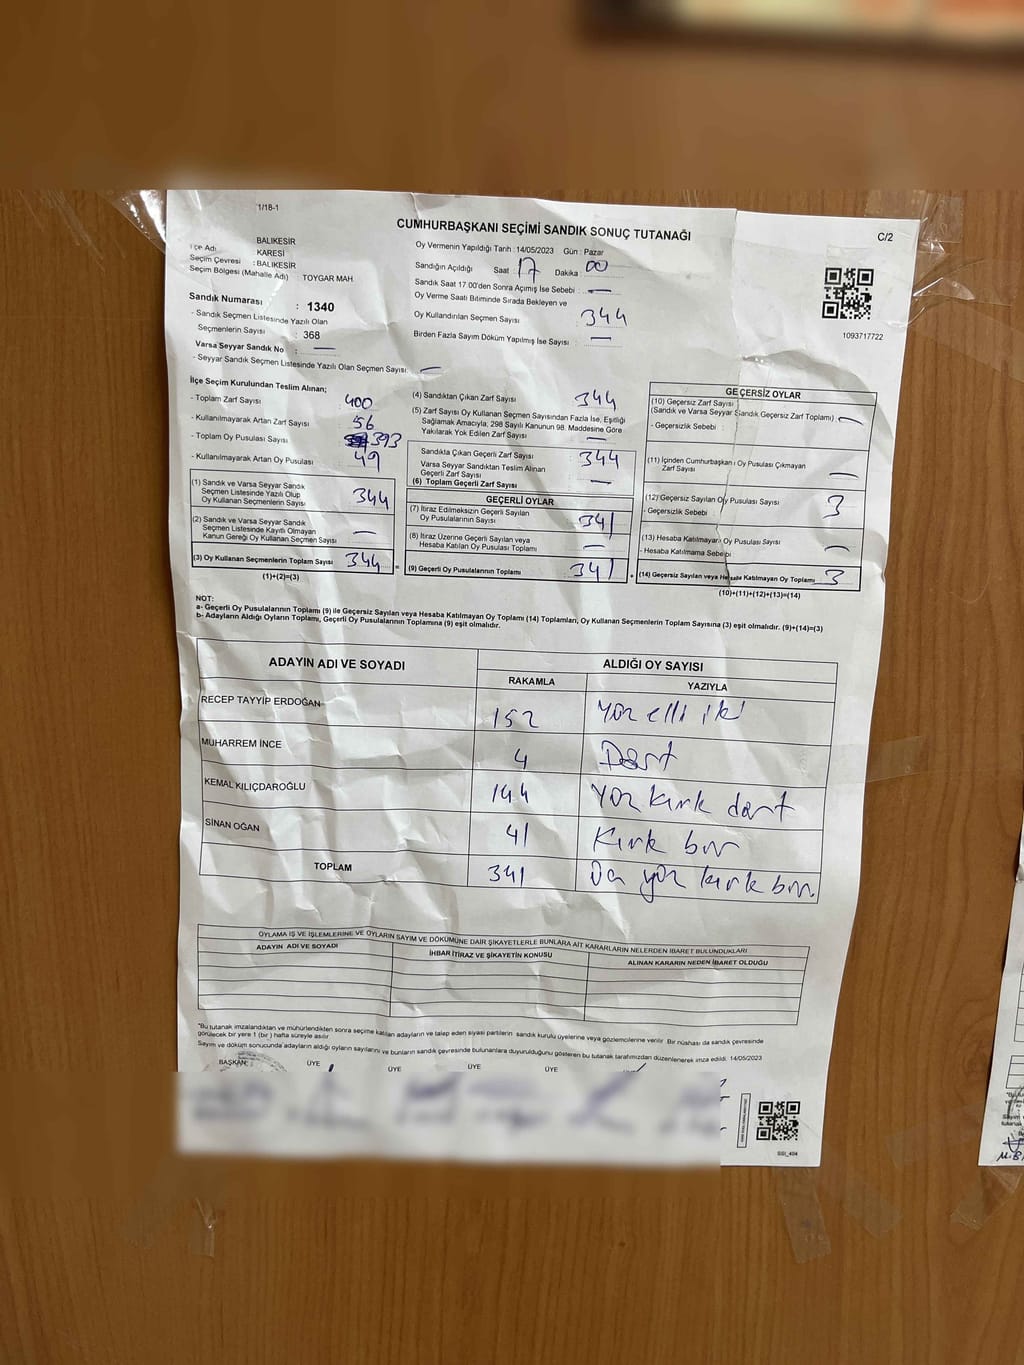 1/18-1
CUMHURBAŞKANI SEÇİMİ SANDIK SONUÇ TUTANAĞI
C/2
İlçe Adı
BALIKESİR
KARESİ
Seçim Çevresi : BALIKESİR
Seçim Bölgesi (Mahalle Adı) : TOYGAR MAH
Sandık Numarası : 1340
- Sandık Seçmen Listesinde Yazılı Olan
Seçmenlerin Sayısı : 368
Varsa Seyyar Sandık No : —
- Seyyar Sandık Seçmen Listesinde Yazılı Olan Seçmen Sayısı: —
Oy Vermenin Yapıldığı Tarih : 14/05/2023 Gün : Pazar
Sandığın Açıldığı Saat : 17 Dakika : 00
Sandık Saat 17.00'den Sonra Açımış İse Sebebi : —
Oy Verme Saati Bitiminde Sırada Bekleyen ve
Oy Kullandırılan Seçmen Sayısı : 344
Birden Fazla Sayım Döküm Yapılmış İse Sayısı : —
1093717722
İlçe Seçim Kurulundan Teslim Alınan;
- Toplam Zarf Sayısı 400
- Kullanılmayarak Artan Zarf Sayısı 56
- Toplam Oy Pusulası Sayısı 393
- Kullanılmayarak Artan Oy Pusulası 49
(1) Sandık ve Varsa Seyyar Sandık
Seçmen Listesinde Yazılı Olup
Oy Kullanan Seçmenlerin Sayısı 344
(2) Sandık ve Varsa Seyyar Sandık
Seçmen Listesinde Kayıtlı Olmayan
Kanun Gereği Oy Kullanan Seçmen Sayısı —
(3) Oy Kullanan Seçmenlerin Toplam Sayısı 344
(1)+(2)=(3)
(4) Sandıktan Çıkan Zarf Sayısı 344
(5) Zarf Sayısı Oy Kullanan Seçmen Sayısından Fazla İse, Eşitliği
Sağlamak Amacıyla, 298 Sayılı Kanunun 98. Maddesine Göre
Yakılarak Yok Edilen Zarf Sayısı —
Sandıkta Çıkan Geçerli Zarf Sayısı 344
Varsa Seyyar Sandıktan Teslim Alınan
Geçerli Zarf Sayısı
(6) Toplam Geçerli Zarf Sayısı —
GEÇERLİ OYLAR
(7) İtiraz Edilmeksizin Geçerli Sayılan
Oy Pusulalarının Sayısı 341
(8) İtiraz Üzerine Geçerli Sayılan veya
Hesaba Katılan Oy Pusulası Toplamı —
(9) Geçerli Oy Pusulalarının Toplamı 341
GEÇERSİZ OYLAR
(10) Geçersiz Zarf Sayısı
(Sandık ve Varsa Seyyar Sandık Geçersiz Zarf Toplamı) —
- Geçersizlik Sebebi :
(11) İçinden Cumhurbaşkanı Oy Pusulası Çıkmayan
Zarf Sayısı —
(12) Geçersiz Sayılan Oy Pusulası Sayısı 3
- Geçersizlik Sebebi :
(13) Hesaba Katılmayan Oy Pusulası Sayısı —
- Hesaba Katılmama Sebebi
(14) Geçersiz Sayılan veya Hesaba Katılmayan Oy Toplamı 3
(10)+(11)+(12)+(13)=(14)
NOT:
a- Geçerli Oy Pusulalarının Toplamı (9) ile Geçersiz Sayılan veya Hesaba Katılmayan Oy Toplamı (14) Toplamları, Oy Kullanan Seçmenlerin Toplam Sayısına (3) eşit olmalıdır. (9)+(14)=(3)
b- Adayların Aldığı Oyların Toplamı, Geçerli Oy Pusulalarının Toplamına (9) eşit olmalıdır.
ADAYIN ADI VE SOYADI ALDIĞI OY SAYISI
RAKAMLA YAZIYLA
RECEP TAYYİP ERDOĞAN 152 Yüz elli iki
MUHARREM İNCE 4 Dört
KEMAL KILIÇDAROĞLU 144 Yüz kırk dört
SİNAN OĞAN 41 Kırk bir
TOPLAM 341 Üç yüz kırk bir.
OYLAMA İŞ VE İŞLEMLERİNE VE OYLARIN SAYIM VE DÖKÜMÜNE DAİR ŞİKAYETLERLE BUNLARA AİT KARARLARIN NELERDEN İBARET BULUNDUKLARI
ADAYIN ADI VE SOYADI İHBAR İTİRAZ VE ŞİKAYETİN KONUSU ALINAN KARARIN NEDEN İBARET OLDUĞU
"Bu tutanak imzalandıktan ve mühürlendikten sonra seçime katılan adayların ve talep eden siyasi partilerin sandık kurulu üyelerine veya gözlemcilerine verilir. Bir nüshası da sandık çevresinde
görülecek bir yere 1 (bir ) hafta süreyle asılır.
Sayım ve döküm sonucunda adayların aldığı oyların sayılarını ve bunların sandık çevresinde bulunanlara duyurulduğunu gösteren bu tutanak tarafımızdan düzenlenerek imza edildi. 14/05/2023
BAŞKAN ÜYE ÜYE ÜYE ÜYE
SSI_404